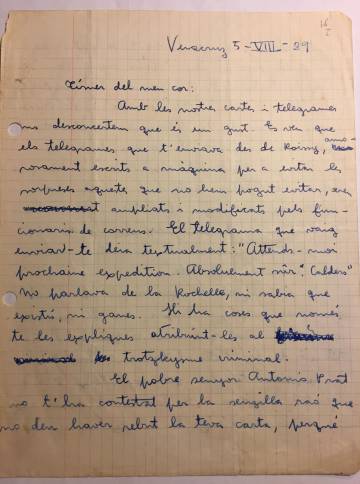 16
I
Veracruz 5-VIII-39
Tísner del meu cor:
Amb les nostres cartes i telegrames
ens desconcertem que és un gust. Es veu que
els telegrames que t'enviava des de Roissy, amo-
rosament escrits a màquina per a evitar les
sorpreses aquestes que no hem pogut evitar, eren
ampliats i modificats pels fun-
cionaris de correus. El telegrama que vaig
enviar-te deia textualment: "Attends-moi
prochaine expedition. Absolument sûr". Calders"
No parlava de la Rochelle, ni sabia que
existís, ni ganes. Hi ha coses que només
te les expliques atribuint-les al
trotzkysme criminal.
El pobre senyor Antonis Prat
no t'ha contestat per la senzilla raó que
no deu haver rebut la teva carta, perquè